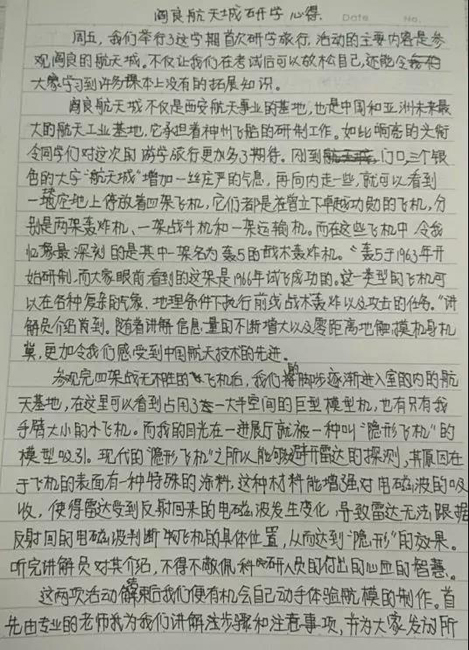 阎良航天城研学心得.
Date No.
周五,我们举行了这学期首次研学旅行,活动的主要内容是参
观阎良的航天城。不仅让我们在考试后可以放松自己,还能令
大家学习到许多课本上没有的拓展知识。
阎良航天城不仅是西安航天事业的基地,也是中国和亚洲未来最
大的航天工业基地,它承担着神州飞船的研制工作。如此响亮的头衔
令同学们对这次的游学旅行更加多了期待。刚到门口,三个银
色的大字"航天城"增加一丝庄严的气息,再向内走一些,就可以看到
一块空地上停放着四架飞机,它们都是在曾立下卓越功勋的飞机,分
别是两架轰炸机、一架战斗机和一架运输机。而在这些飞机中,令我
印象最深刻的是其中一架名为轰5的战术轰炸机。"轰5于1963年开
始研制,而大家眼前看到的这架是1966年试飞成功的。这一类型的飞机可
以在各种复杂的气象、地理条件下执行前线战术轰炸以及攻击的任务。"讲
解员介绍首到。随着讲解信息量的不断增大以及零距离地触摸机身机
翼,更加令我们感受到中国航天技术的先进。
参观完四架战无不胜的飞机后,我们的脚步逐渐进入室内的航
天基地,在这里可以看到占用了一大半空间的巨型模型机,也有只有我
手臂大小的小飞机。而我的目光在一进展厅就被一种叫"隐形飞机"的
模型吸引。现代的"隐形飞机"之所以能够避开雷达的探测,其原因在
于飞机的表面有一种特殊的涂料,这种材料能增强对电磁波的吸
收,使得雷达受到反射回来的电磁波发生变化,导致雷达无法跟据
反射回的电磁波判断飞机的具体位置,从而达到"隐形"的效果。
听完讲解员对其介绍,不得不敬佩科研人员的付出的心血的智慧。
这两项活动结束后我们便有机会自己动手体验航模的制作。首
先由专业的老师我为我们讲解注步骤和注意事项,并为大家发动所